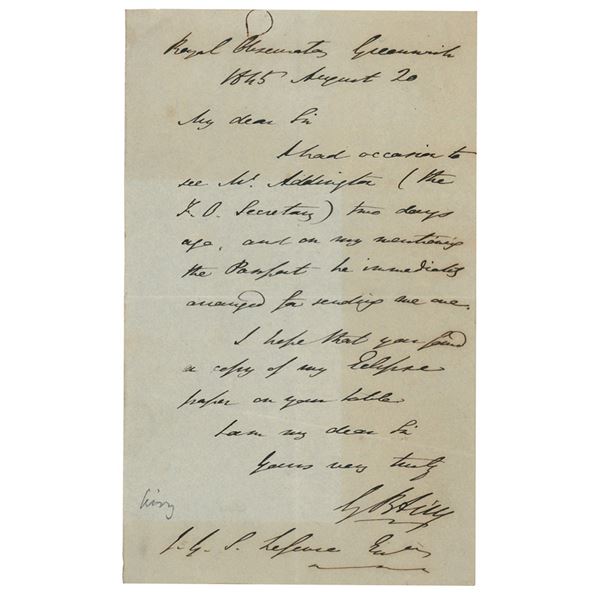 Royal Observatory Greenwich
1845 August 20
My dear Sir
I had occasion to
see Mr. Addington (the
F.O. Secretary) two days
ago, and on my mentioning
the Passport he immediately
arranged for sending me one.
I hope that you found
a copy of my Eclipse
paper on your table
I am my dear Sir
Yours very truly
G B Airy
Airy
J. G. S. Lefevre Esq